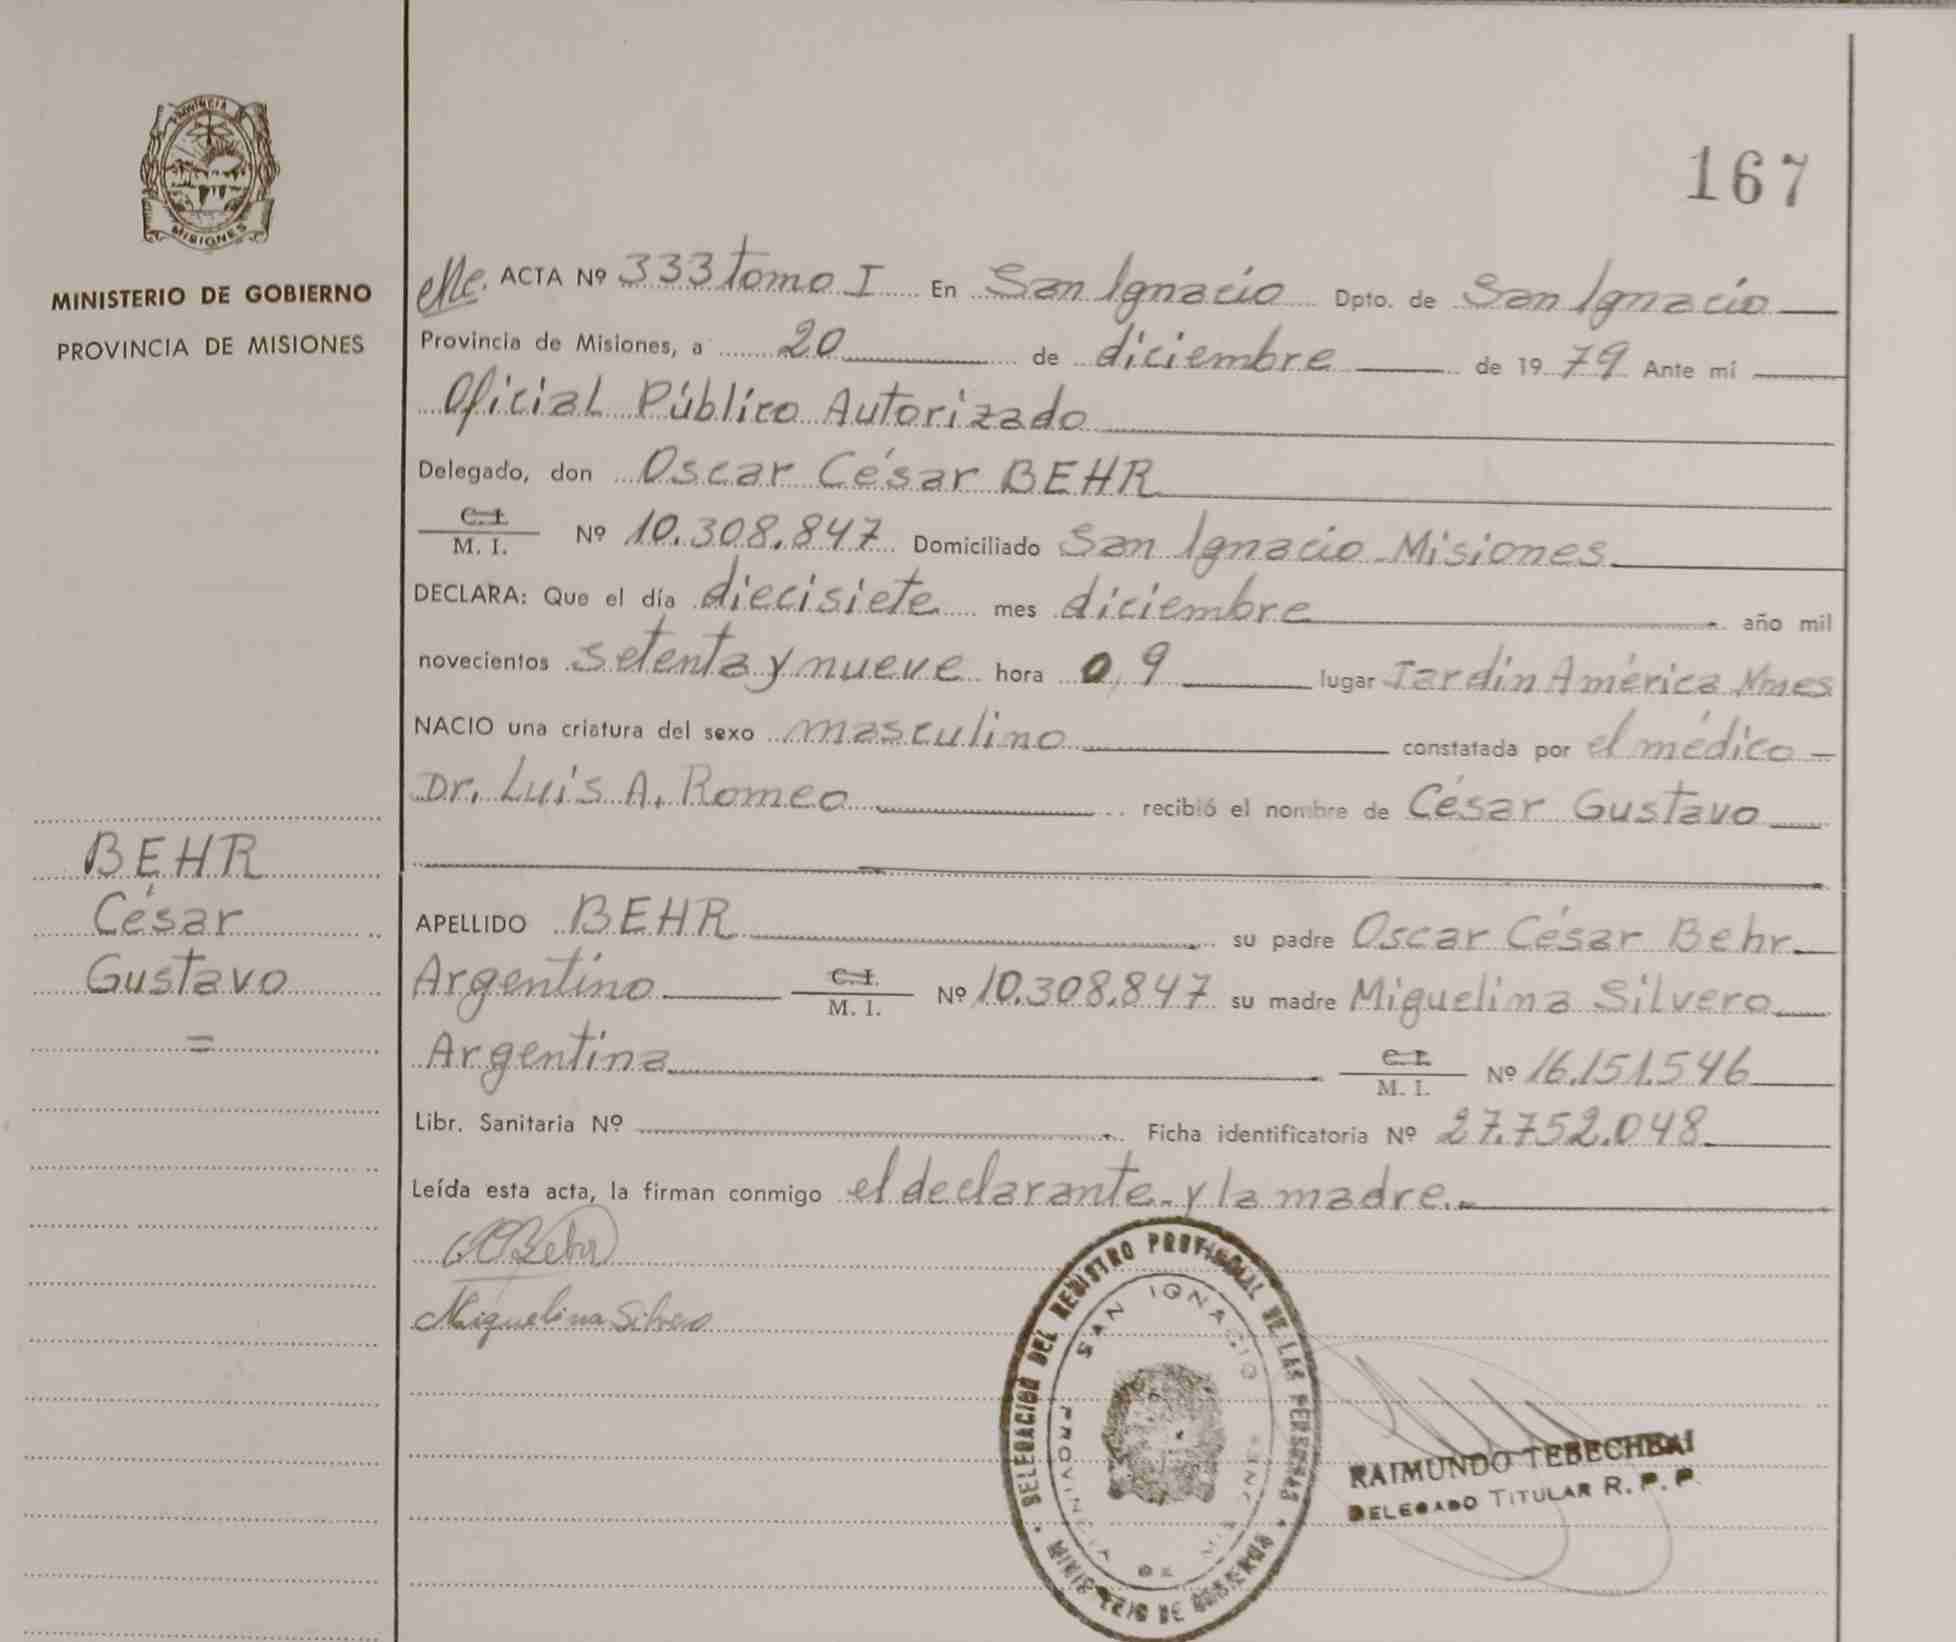 PROVINCIA
MISIONES
MINISTERIO DE GOBIERNO
PROVINCIA DE MISIONES
BEHR
César
Gustavo
=
167
ACTA Nº 333 tomo I En San Ignacio Dpto. de San Ignacio
Provincia de Misiones, a 20 de diciembre de 1979 Ante mí
Oficial Público Autorizado
Delegado, don Oscar César BEHR
C.I.
M. I. Nº 10.308.847 Domiciliado San Ignacio - Misiones
DECLARA: Que el día diecisiete mes diciembre año mil
novecientos setenta y nueve hora 0,9 lugar Jardín América Mnes
NACIO una criatura del sexo masculino constatada por el médico
Dr. Luis A. Romeo recibió el nombre de César Gustavo
APELLIDO BEHR su padre Oscar César Behr
Argentino C.I. M. I. Nº 10.308.847 su madre Miguelina Silvero
Argentina C.I. M. I. Nº 16.151.546
Libr. Sanitaria Nº Ficha identificatoria Nº 27.752.048
Leída esta acta, la firman conmigo el declarante - y la madre.-
Behr
Miguelina Silvero
DELEGACION DEL REGISTRO PROVINCIAL DE LAS PERSONAS
SAN IGNACIO
PROVINCIA DE MISIONES
RAIMUNDO TEBECHRAI
DELEGADO TITULAR R. P. P.